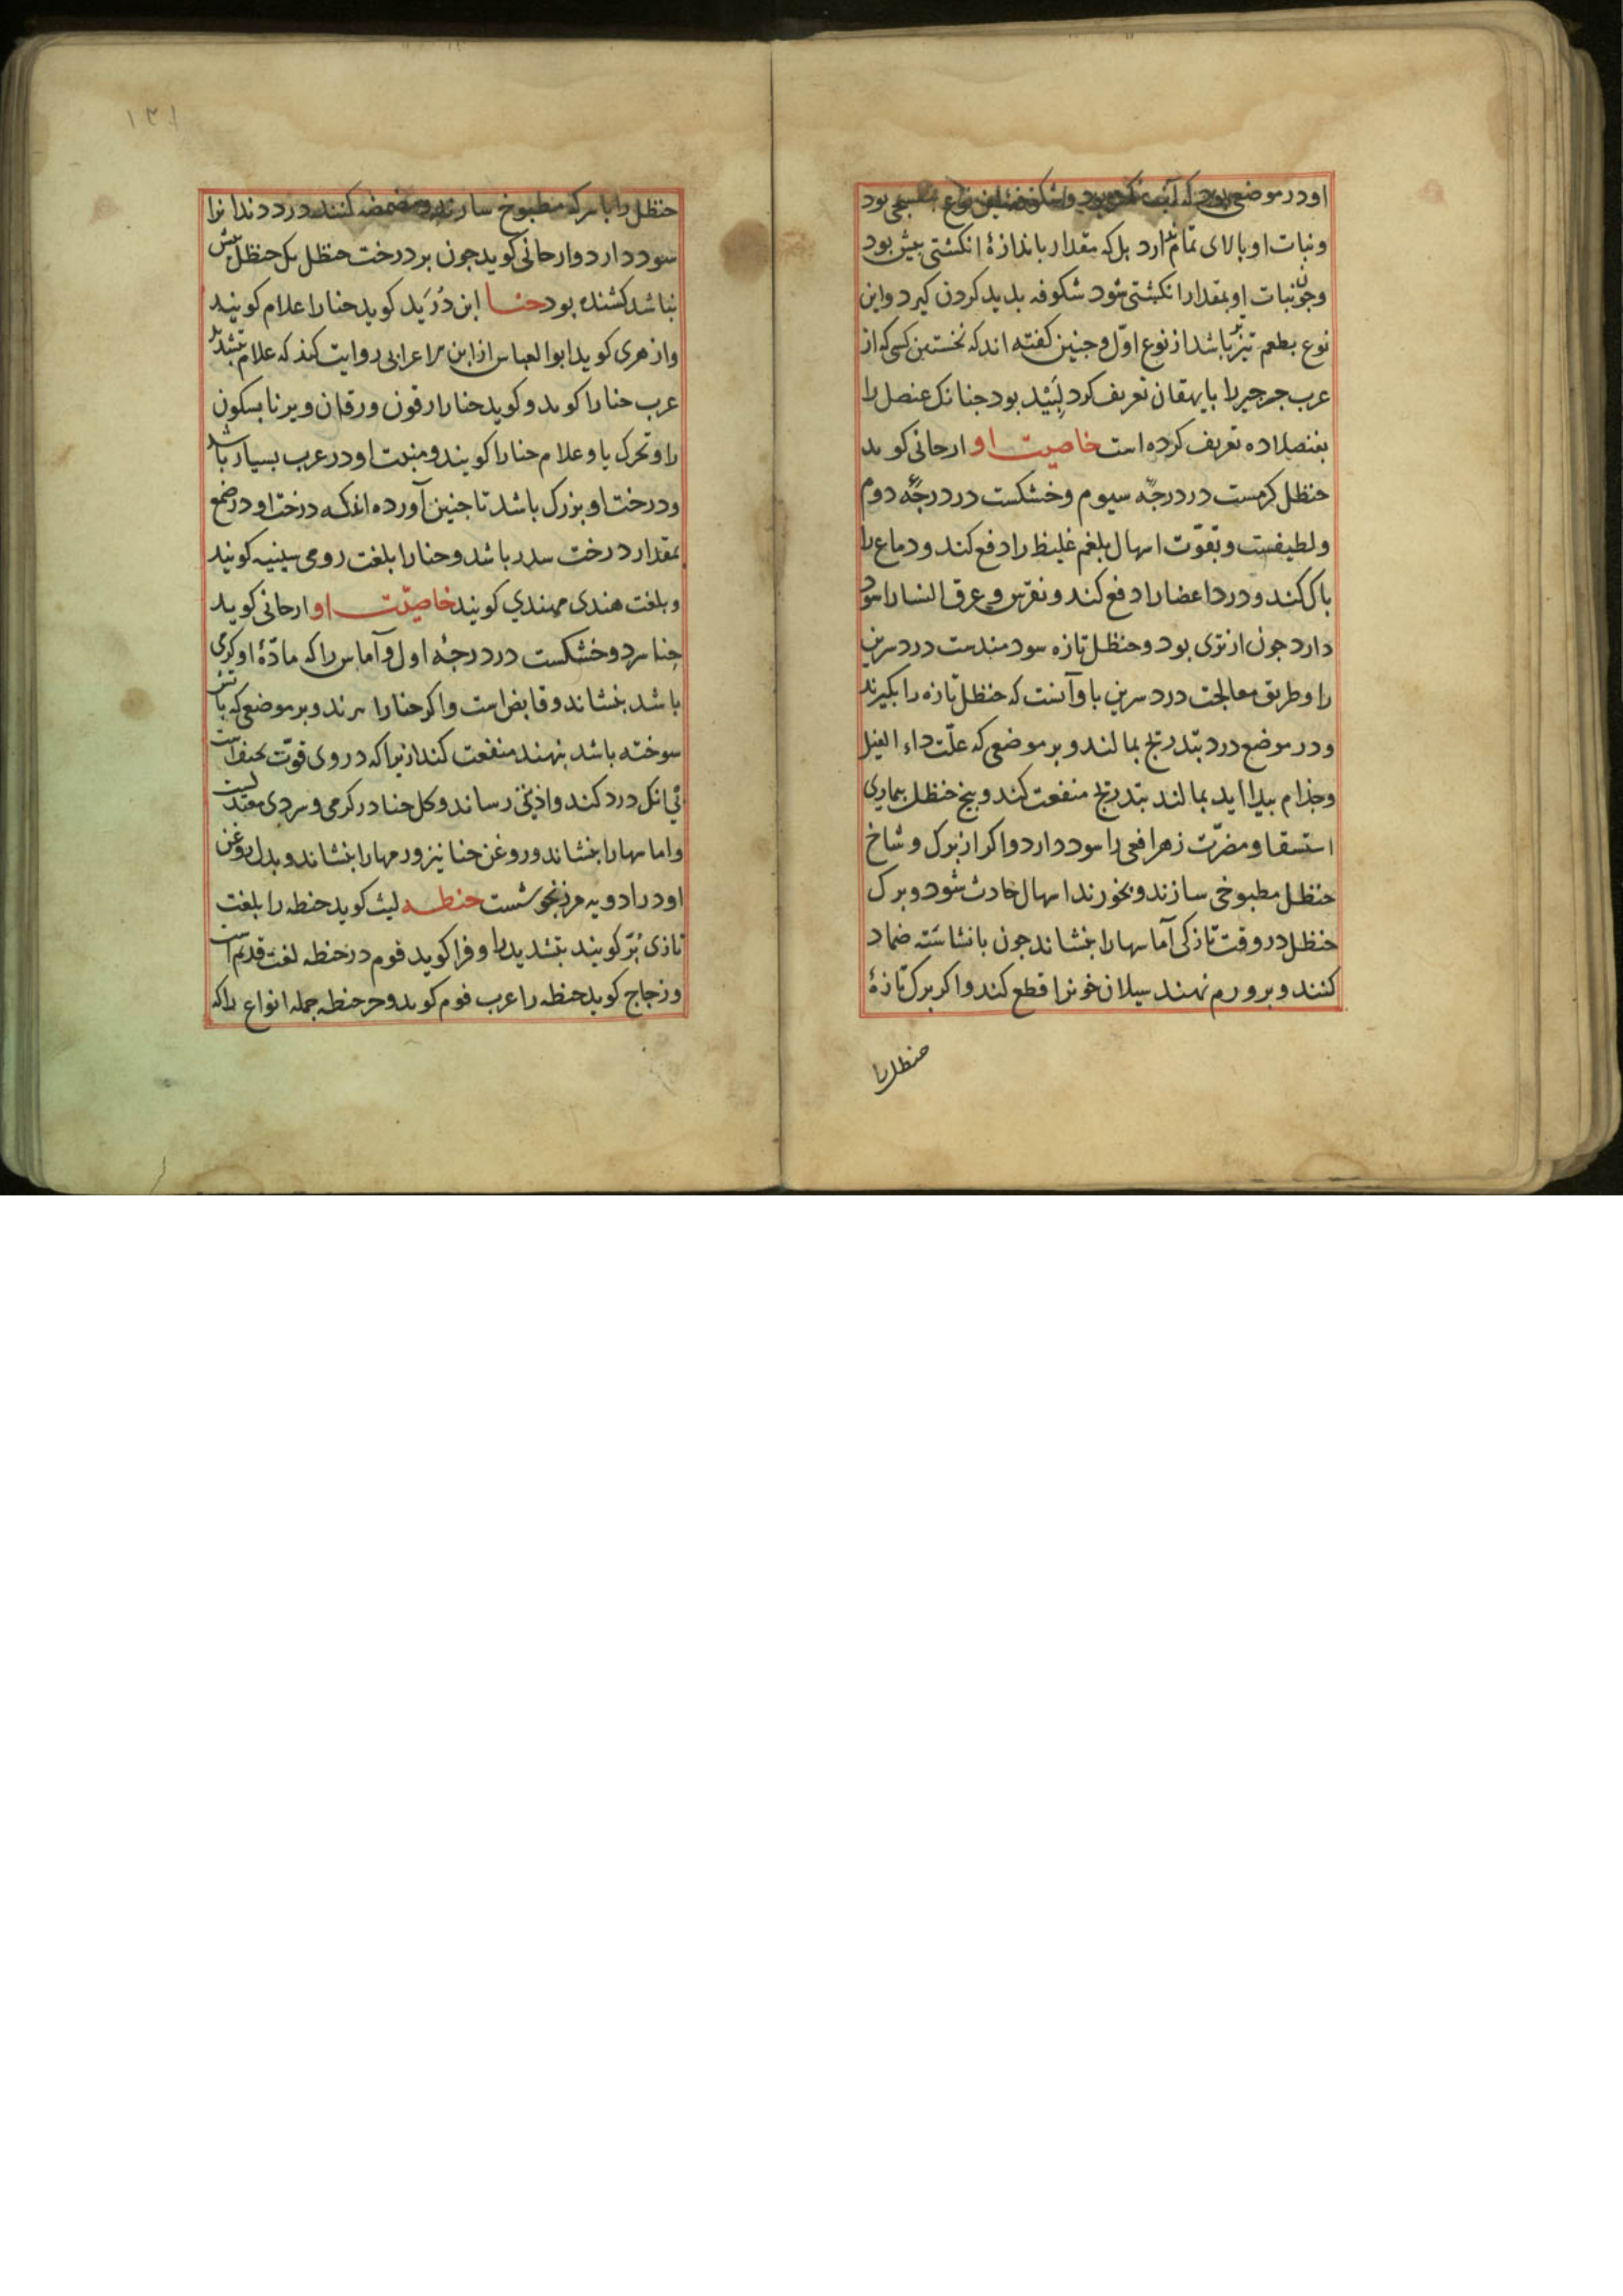 او در موضعی بود که آب نزدیک بود و شکوفه این نوع بود
و نبات او بالای تمام ندارد بلکه مقدار باندازهٔ انکشتی بیش بود
و چون نبات او بمقدار انکشتی شود شکوفه بدید کردن کیرد و این
نوع بطعم تیزتر باشد از نوع اوّل و جنین کفته اند که نخستین کسی که از
عرب جرجیر را بایهقان تعریف کرد لَبید بود جنانک عنصل را
بعنصلاده تعریف کرده است خاصیت او ارجانی کوید
حنظل کرمست در درجهٔ سیوم و خشکست در درجهٔ دوم
و لطیفست و بقوّت اسهال بلغم غلیظ را دفع کند و دماغ را
باک کند و درد اعضا را دفع کند و نقرس و عرق النسا را سود
دارد جون از تری بود و حنظل تازه سودمندست درد سرین
را و طریق معالجت درد سرین باو آنست که حنظل تازه را بکیرند
و در موضع درد بتدریج بمالند و بر موضعی که علّت داء الفیل
و جذام بیدا اید بمالند بتدریج منفعت کند و بیخ حنظل بیماری
استسقا و مضرّت زهر افعی را سود دارد و اکر از برک و شاخ
حنظل مطبوخی سازند و بخورند اسهال حادث شود و برک
حنظل در وقت تازکی آماسها را بنشاند جون با نشاسته ضماد
کنند و بر ورم نهند سیلان خونرا قطع کند و اکر برک تازهٔ
حنظل را
۱۳۱
حنظل را با سرکه مطبوخ سازند و مضمضه کنند درد دندانرا
سود دارد و ارجانی کوید جون بر درخت حنظل یک حنظل بیش
نباشد کشنده بود حنا ابن دُرَید کوید حنا را اعلام کویند
و ازهری کوید ابوالعباس از ابن اعرابی روایت کند که علام بتشدید
عرب حنا را کوید و کوید حنا را رقون و رقان و یرنا بسکون
را و تحرک یا و علام حنا را کویند و منبت او در عرب بسیار باشد
و درخت او بزرک باشد تا جنین آورده اند که درخت او در موضع
بمقدار درخت سدر باشد و حنا را بلغت رومی سینیه کویند
و بلغت هندی مهندی کویند خاصیّت او ارجانی کوید
حنا سرد و خشکست در درجهٔ اول و آماس را که مادّهٔ او کرمی
باشد بنشاند و قابض است و اکر حنا را برند و بر موضعی که باتش
سوخته باشد بنهند منفعت کند ازیرا که در وی قوّت تجفیف است
بی انک درد کند و اذیّتی رساند و کل حنا در کرمی و سردی معتدلست
و اماسها را بنشاند و روغن حنا نیز ورمها را بنشاند و بدل روغن
او در ادویه مرزنجوشست حنطه لیث کوید حنطه را بلغت
تازی بُرّ کویند بتشدید را و فرا کوید فوم در حنطه لغت قدیم است
و زجاج کوید حنطه را عرب فوم کوید و جز حنطه جمله انواع را که